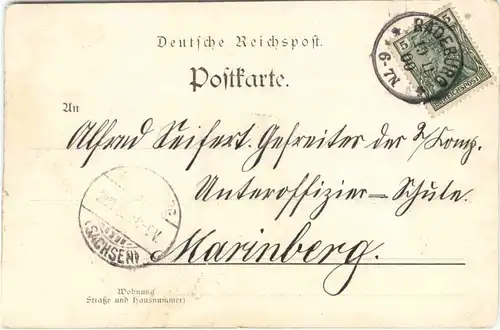 Deutsche Reichspost.
Postkarte.
RADEBURG
6-7N.
5
REICHSPOST
An
Alfred Seifert. Gefreiter der 2/Komp.
Unteroffizier-Schule.
Marinberg.
(SACHSEN)
Wohnung
(Straße und Hausnummer)